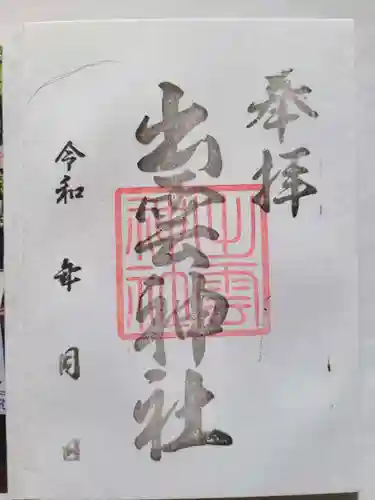 奉拝
出雲神社
出雲
神社
令和 年 月 日